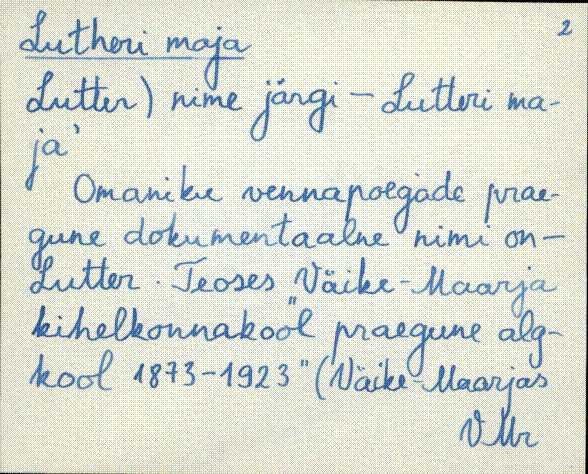 2
Lutheri maja
Lutter) nime järgi – Lutteri ma-
ja'
Omaniku vennapoegade prae-
gune dokumentaalne nimi on –
Lutter. Teoses Väike-Maarja
"kihelkonnakool praegune alg-
kool 1873–1923" (Väike-Maarjas
VMr